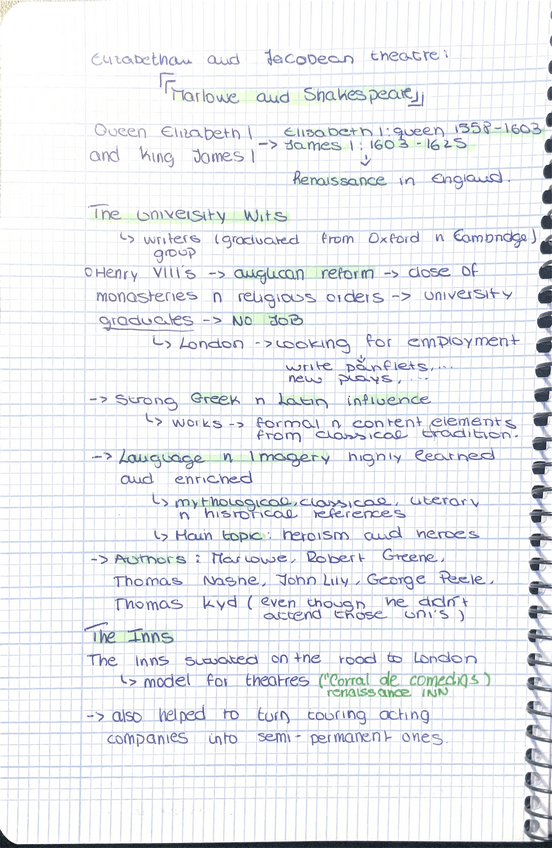 Elizabethan and Jacobean theatre:
『Marlowe and Shakespeare』
Queen Elizabeth I
and King James I
-> Elisabeth I: queen 1558-1603
James I: 1603-1625
↓
Renaissance in England.
The University Wits
↳ writers (graduated from Oxford n Cambridge)
group
○Henry VIII's -> anglican reform -> close of
monasteries n religious orders -> university
graduates -> NO JOB
↳ London -> looking for employment
↓
write panflets,...
new plays,...
-> Strong Greek n Latin influence
↳ works -> formal n content elements
from classical tradition.
-> Language n Imagery highly learned
and enriched
↳ mythological, classical, literary
n historical references
↳ Main topic: heroism and heroes
-> Authors: Marlowe, Robert Greene,
Thomas Nashe, John Lily, George Peele,
Thomas Kyd (even though he didn't
attend those uni's)
The Inns
The Inns situated on the road to London
↳ model for theatres ("Corral de comedias)
renaissance INN
-> also helped to turn touring acting
companies into semi-permanent ones.